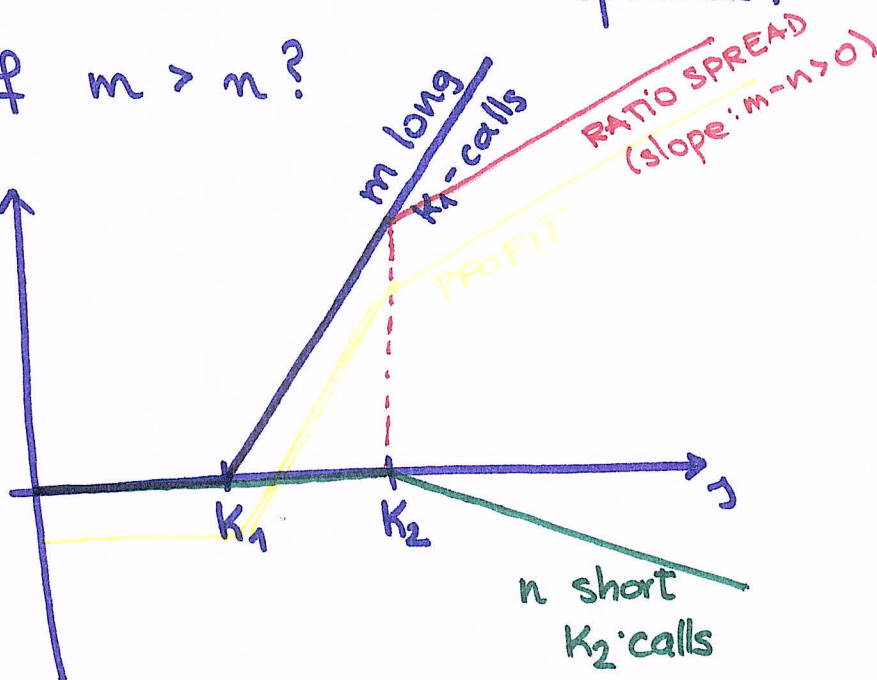 m > n?
m long
K₁-calls
RATIO SPREAD
(slope: m-n>0)
PROFIT
K₁
K₂
s
n short
K₂-calls